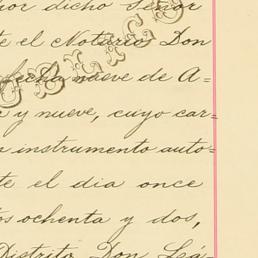 por dicho Señor
te el Notario Don
fecha nueve de A=
a y nueve, cuyo car=
o instrumento auto=
te el dia once
tos ochenta y dos,
Distrito Don Leá=